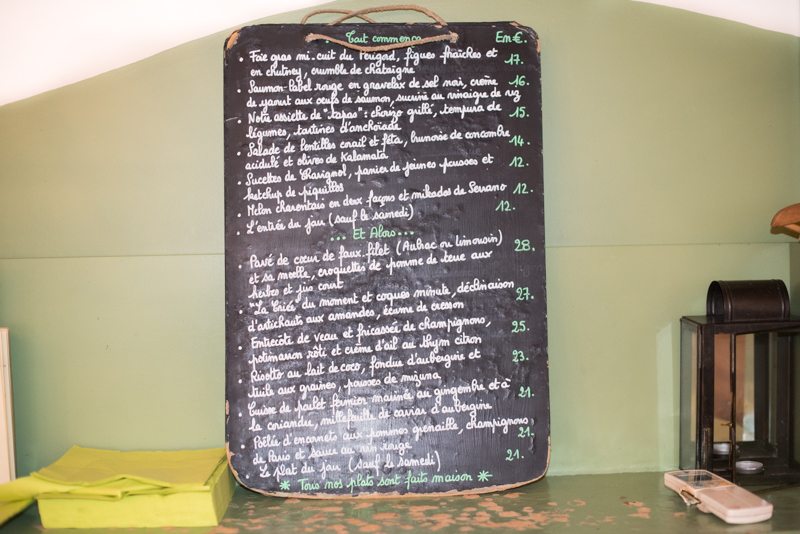 Tout commence En €.
• Foie gras mi-cuit du Périgord, figues fraîches et 17.
en chutney, crumble de chataîgne
• Saumon label rouge en gravelax de sel noir, crème 16.
de yaourt aux oeufs de saumon, sucrine au vinaigre de riz
• Notre assiette de "tapas": chorizo grillé, tempura de 15.
légumes, tartines d'anchoïade
• Salade de lentilles corail et féta, brunoise de concombre 14.
acidulé et olives de Kalamata
• Sucettes de Chavignol, panier de jeunes pousses et 12.
ketchup de piquillos
• Melon charentais en deux façons et mikados de Serrano 12.
• L'entrée du jour (sauf le samedi) 12.
... Et Alors ...
• Pavé de coeur de faux-filet (Aubrac ou limousin) 28.
et sa moelle, croquettes de pomme de terre aux
herbes et jus court
• "La Criée" du moment et coques minute, déclinaison 27.
d'artichauts aux amandes, écume de cresson
• Entrecôte de veau et fricassée de champignons, 25.
potimarron rôti et crème d'ail au thym citron
• Risotto au lait de coco, fondue d'aubergine et 23.
tuile aux graines, pousses de mizuna
• Cuisse de poulet fermier marinée au gingembre et à 21.
la coriandre, millefeuille de caviar d'aubergine
• Poêlée d'encornets aux pommes grenaille, champignons 21.
de Paris et sauce au vin rouge
• Le plat du jour (sauf le samedi) 21.
* Tous nos plats sont faits maison *